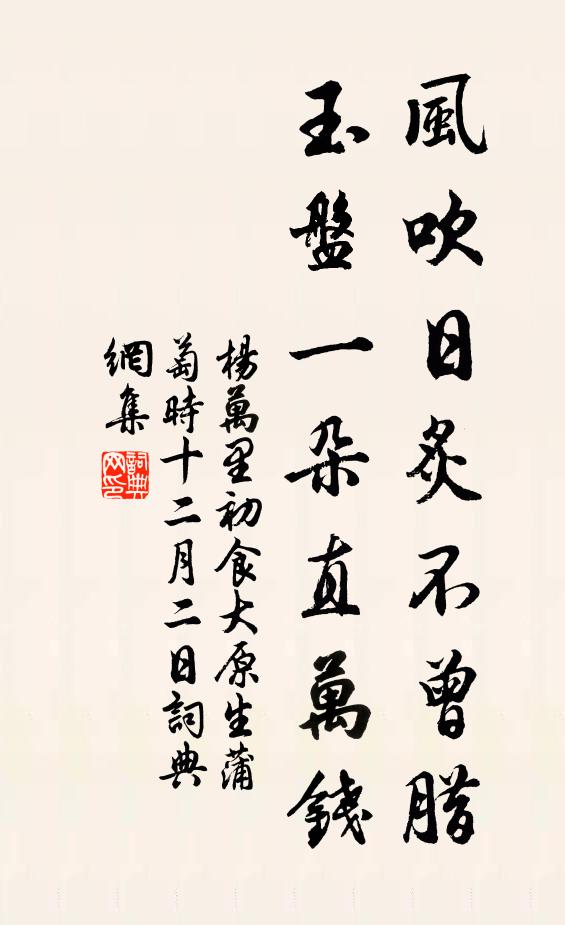 風吹日炙不曾腊
玉盤一朵直萬錢
楊萬里初食大原生蒲
萄時十二月二日詞典
網集
詞典
网印